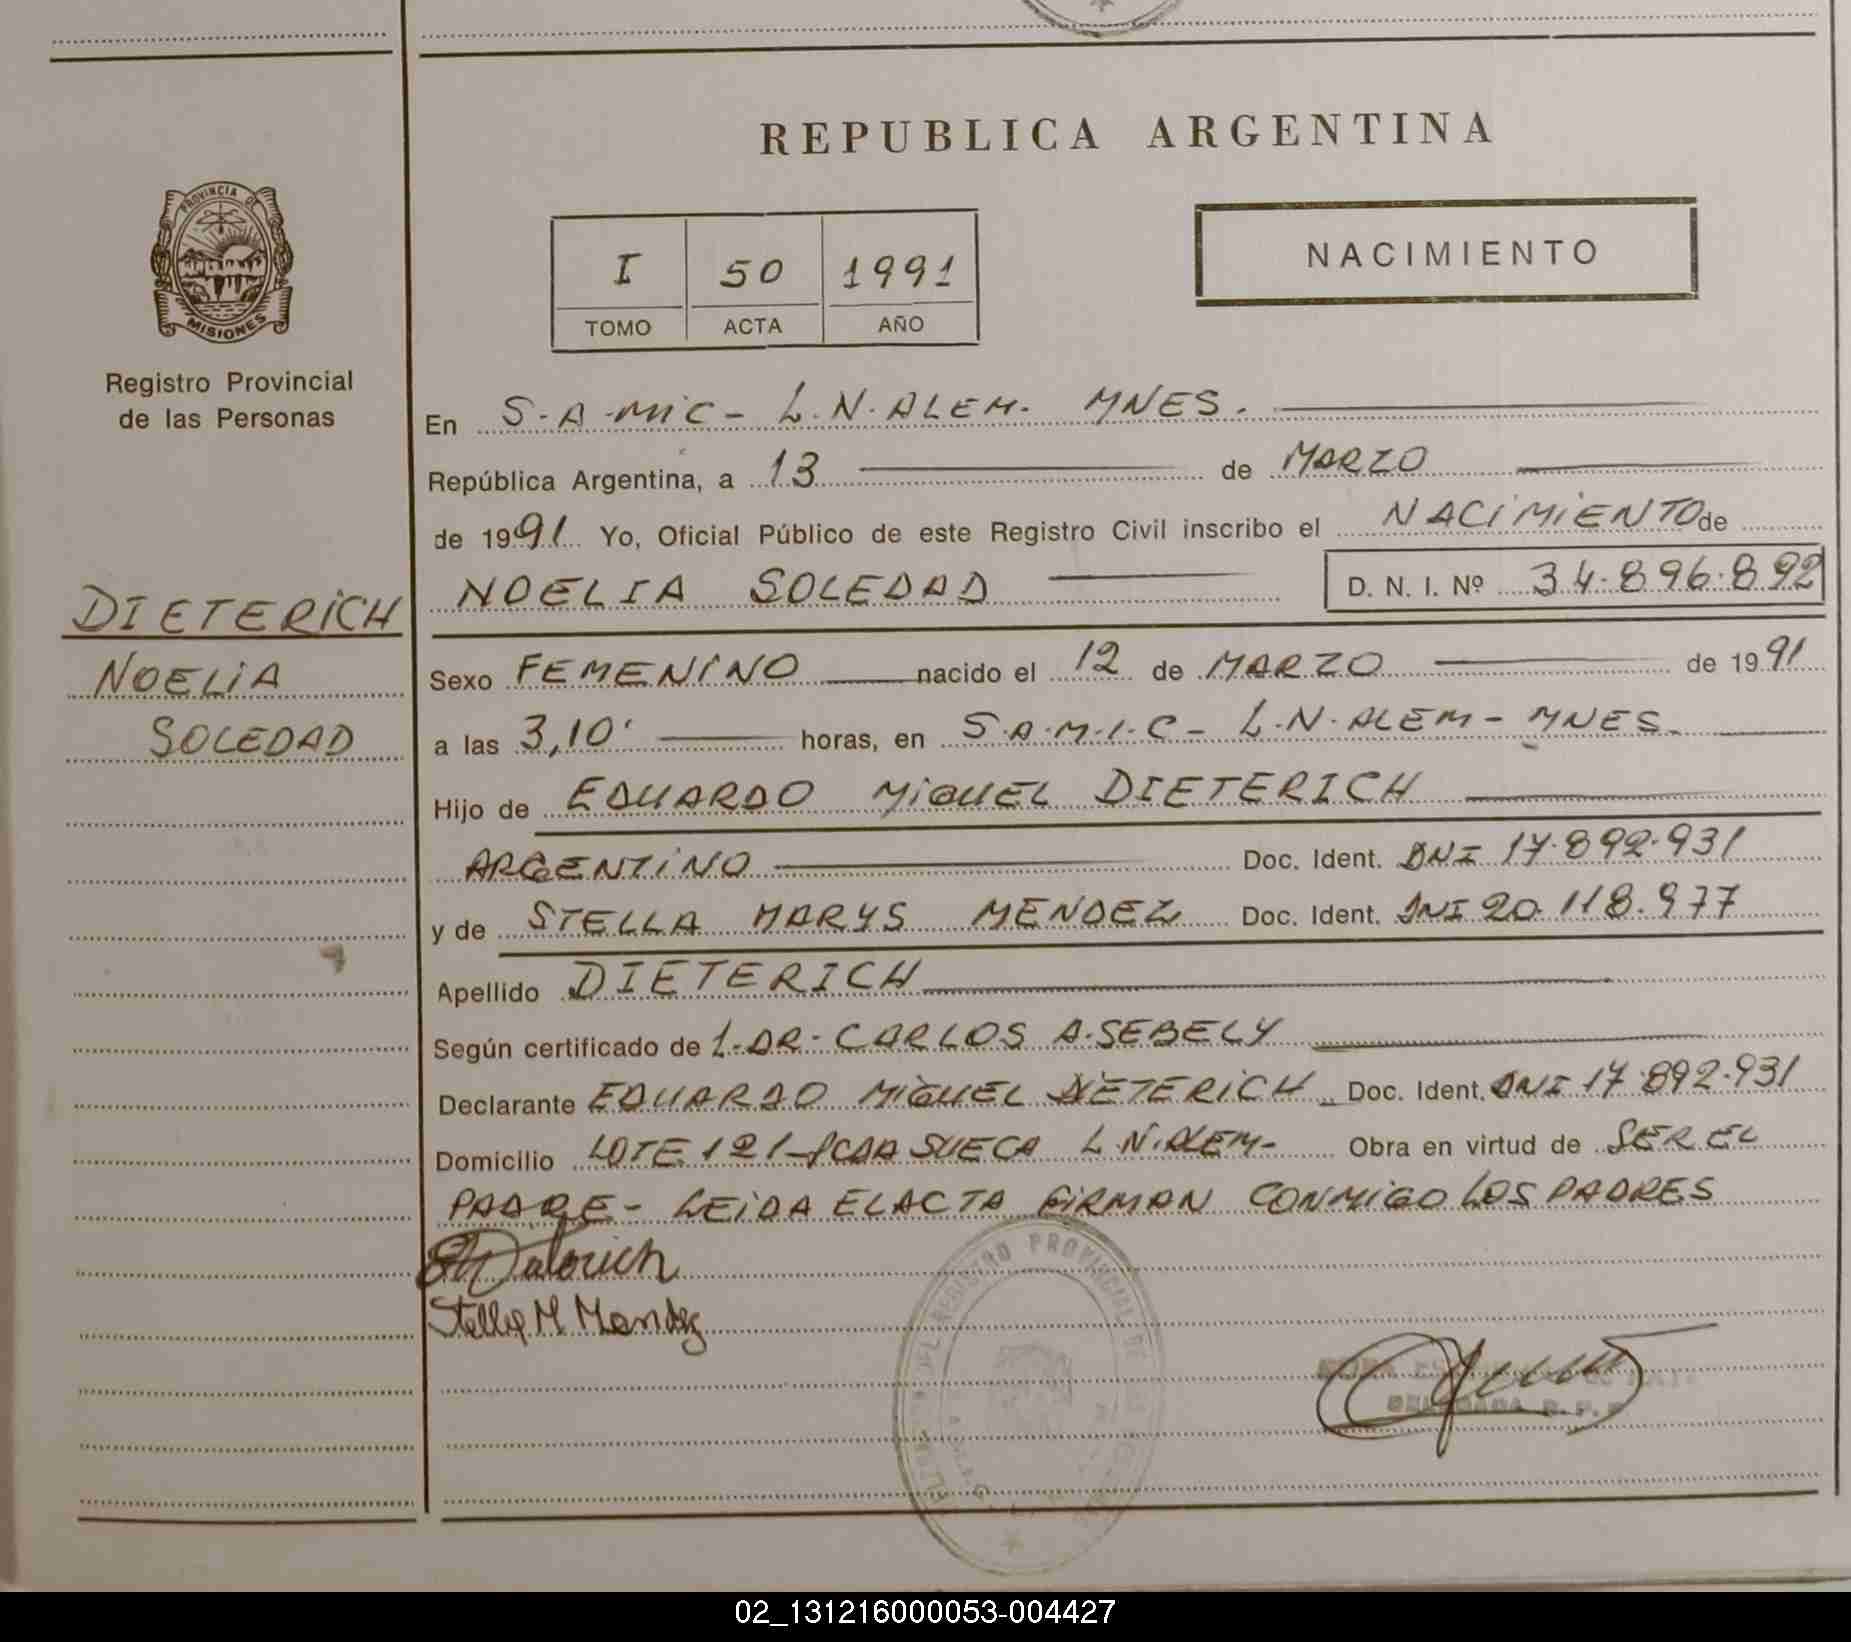 REPUBLICA ARGENTINA
PROVINCIA DE
MISIONES
Registro Provincial
de las Personas
I 50 1991
TOMO ACTA AÑO
NACIMIENTO
En S-A-MiC- L.N.ALEM. MNES.
República Argentina, a 13 de MARZO
de 1991 Yo, Oficial Público de este Registro Civil inscribo el NACIMIENTO de
NOELIA SOLEDAD D. N. I. Nº 34.896.892
DIETERICH
NOELIA
SOLEDAD
Sexo FEMENINO nacido el 12 de MARZO de 1991
a las 3,10' horas, en S.A.M.I.C- L.N.ALEM- MNES.
Hijo de EDUARDO MIGUEL DIETERICH
ARGENTINO Doc. Ident. DNI 17.892.931
y de STELLA MARYS MENDEZ Doc. Ident. DNI 20.118.977
Apellido DIETERICH
Según certificado de 1.DR. CARLOS A.SEBELY
Declarante EDUARDO MIGUEL DIETERICH Doc. Ident. DNI 17.892.931
Domicilio LOTE 121- SUECA L.N.ALEM- Obra en virtud de SER EL
PADRE- LEIDA EL ACTA FIRMAN CONMIGO LOS PADRES
Stella M Mendez
REGISTRO PROVINCIAL DE
DELEGADA R.P.P
02_131216000053-004427